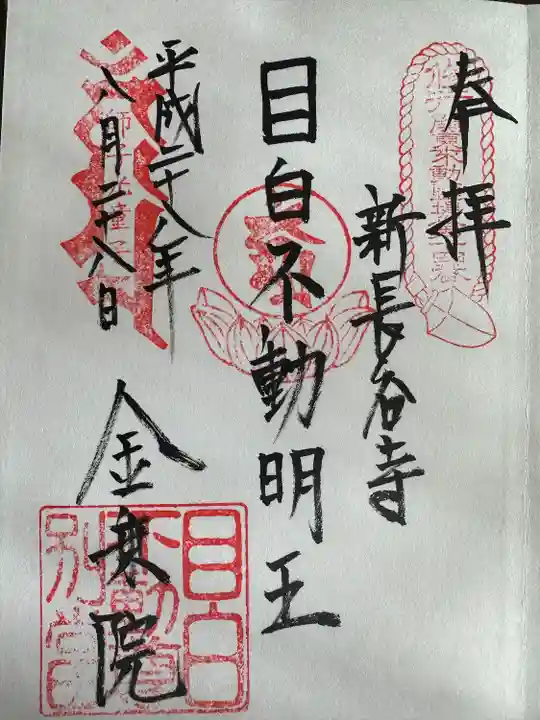 奉拝
新長谷寺
目白不動明王
平成二十八年
八月二十八日
金乗院
目白
不動尊
別當